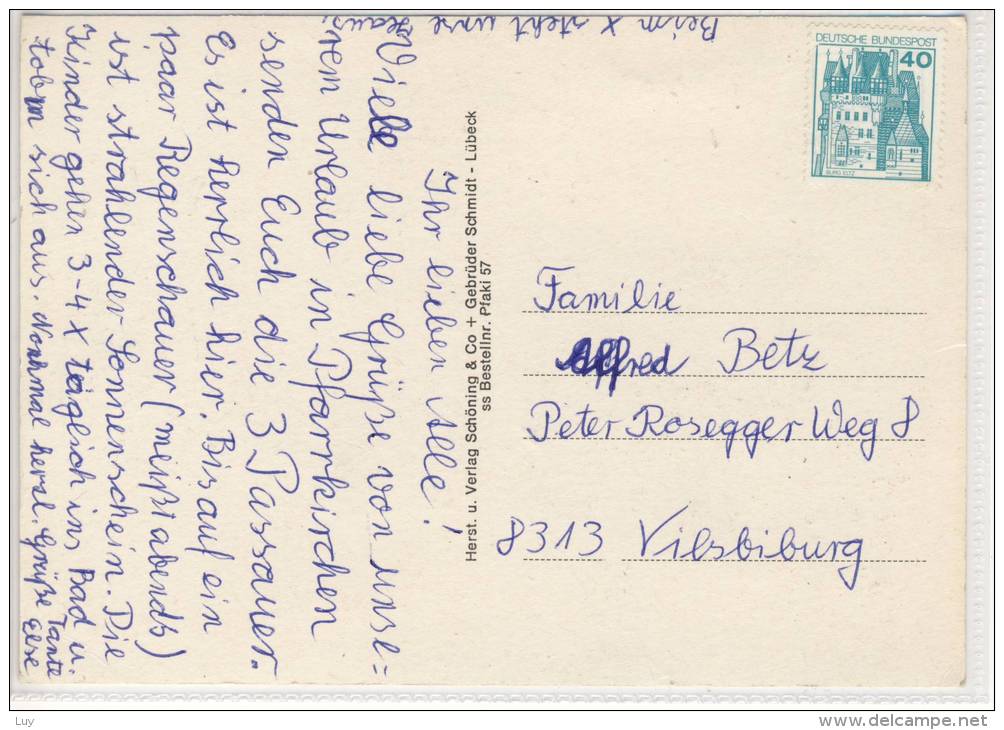 Beim x steht unse
Haus.
Ihr lieben Alle!
Viele liebe Grüße von unse-
rem Urlaub in Pfarrkirchen
senden Euch die 3 Passauer.
Es ist herrlich hier. Bis auf ein
paar Regenschauer (meißt abends)
ist strahlender Sonnenschein. Die
Kinder gehen 3-4 x täglich ins Bad u.
toben sich aus. Nochmal herzl. Grüße Tante
Herst. u. Verlag Schöning & Co + Gebrüder Schmidt - Lübeck
ss Bestellnr. Pfaki 57
DEUTSCHE BUNDESPOST
40
BURG ELTZ
Familie
Alfred Betz
Peter Rosegger Weg 8
8313 Vilsbiburg
Luy
www.delcampe.net